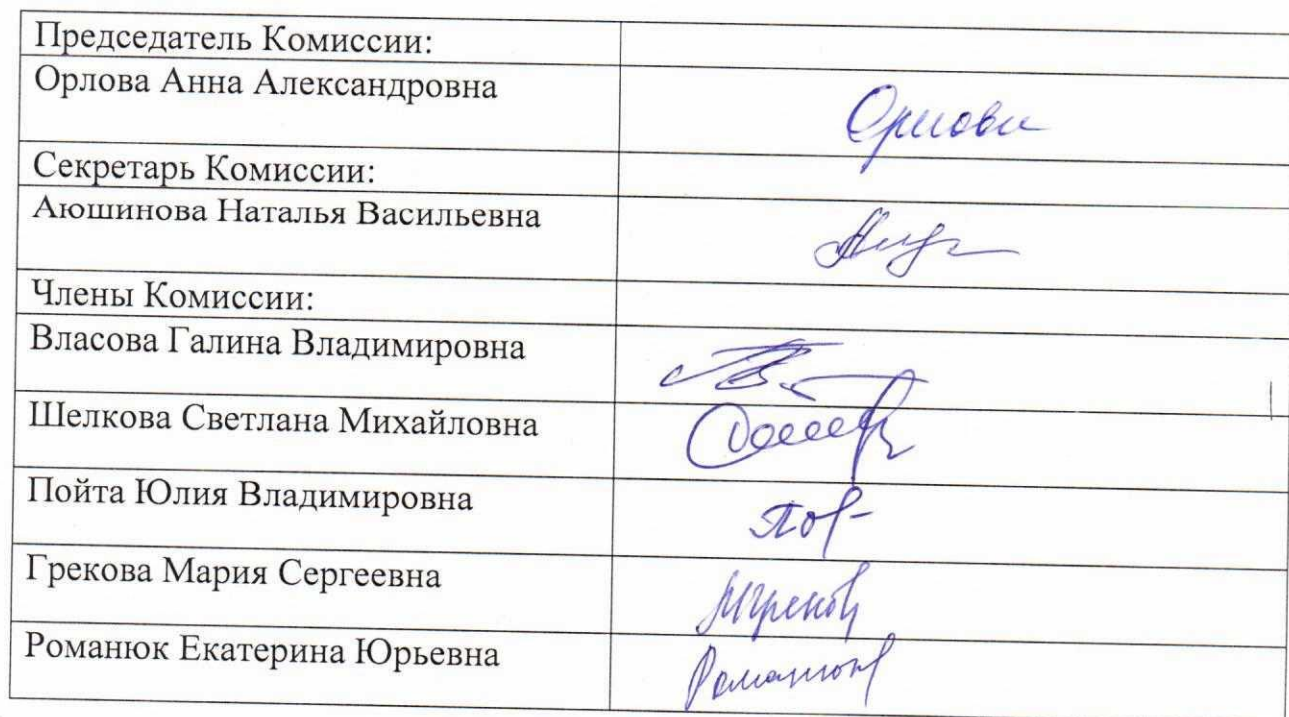 Председатель Комиссии:
Орлова Анна Александровна
Орлова
Секретарь Комиссии:
Аюшинова Наталья Васильевна
Члены Комиссии:
Власова Галина Владимировна
Шелкова Светлана Михайловна
Пойта Юлия Владимировна
Грекова Мария Сергеевна
Романюк Екатерина Юрьевна
Романюк